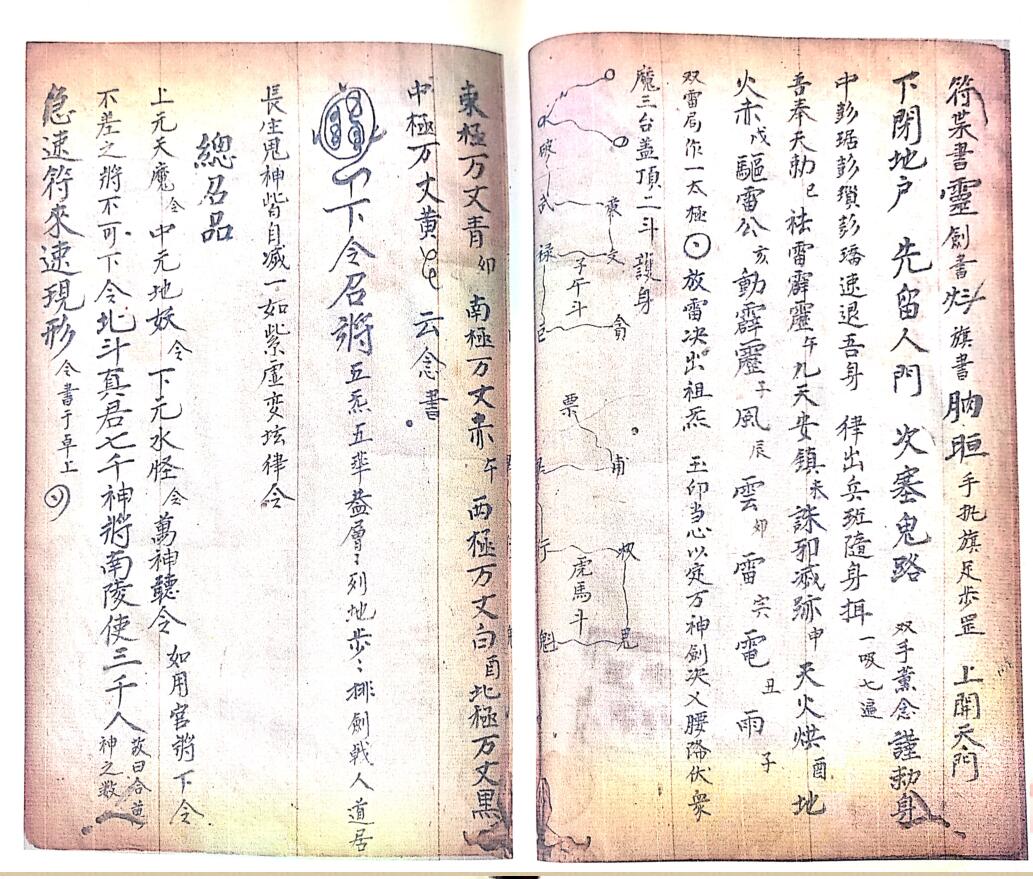 符呆書靈劍書 旗書 手扎旗足步罡 上開天門
下閉地户 先留人門 次塞鬼路 双手薰念謹勅身
中彭琚彭瓆彭璚速退吾身 律出兵班隨身 一吸七遍
吾奉天勅巳 祛雷霹靂午九天安鎮未誅邪滅跡申天火烘酉地
火赤戌驅雷公亥動霹靂子風辰雲卯雷 電丑雨子
双雷局作一太極 放雷决出祖炁 玉印当心以定万神劍决乂腰降伏衆
魔三台蓋頂二斗護身
子午斗
虎馬斗
東極万丈青卯 南極万丈赤午 西極万丈白酉北極万丈黑
中極万丈黄 云念書
下令召將五炁五 層〻列地步〻排劍戟人道居
長生鬼神皆自滅一如紫虛变坛律令
總召品
上元天魔令中元地妖令下元水怪令萬神聽令 如用官將下令
不差之將不可下令北斗真君七千神將南陵使三千人 故曰合 神之数
急速符來速現形 令書于卓上